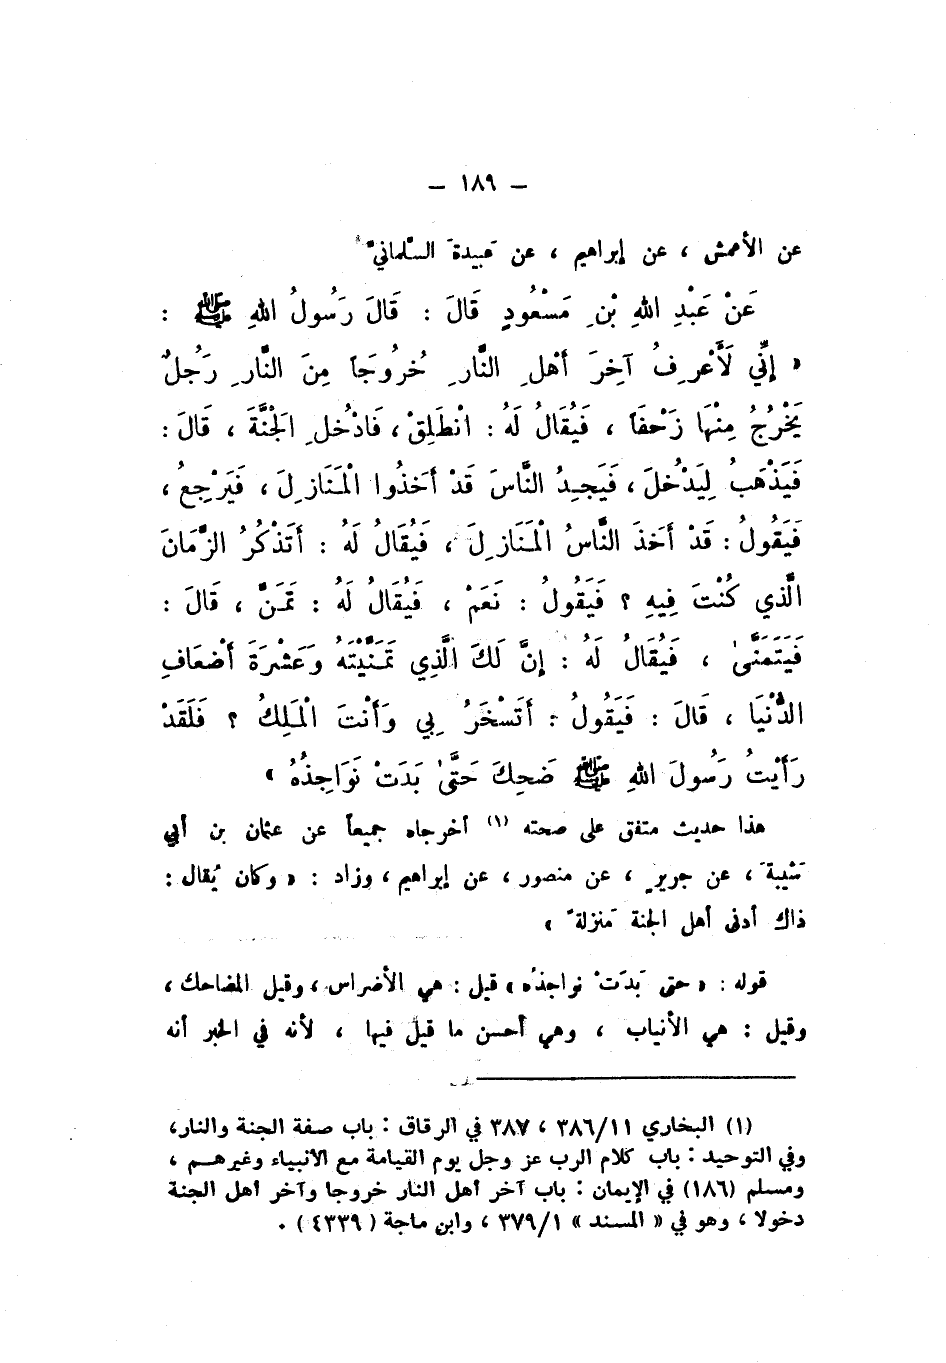 — ١٨٩ —
عن الأعمش ، عن إبراهيم ، عن عَبيدةَ السَّلمانيّ
عَنْ عَبْدِ اللهِ بْنِ مَسْعُودٍ قَالَ : قَالَ رَسُولُ اللهِ ﷺ :
« إِنِّي لَأَعْرِفُ آخِرَ أَهْلِ النَّارِ خُرُوجَاً مِنَ النَّارِ رَجُلٌ
يَخْرُجُ مِنْهَا زَحْفَاً ، فَيُقَالُ لَهُ : انْطَلِقْ ، فَادْخُلِ الْجَنَّةَ ، قَالَ :
فَيَذْهَبُ لِيَدْخُلَ ، فَيَجِدُ النَّاسَ قَدْ أَخَذُوا الْمَنَازِلَ ، فَيَرْجِعُ ،
فَيَقُولُ : قَدْ أَخَذَ النَّاسُ الْمَنَازِلَ ، فَيُقَالُ لَهُ : أَتَذْكُرُ الزَّمَانَ
الَّذي كُنْتَ فِيهِ ؟ فَيَقُولُ : نَعَمْ ، فَيُقَالُ لَهُ : تَمَنَّ ، قَالَ :
فَيَتَمَنَّىٰ ، فَيُقَالُ لَهُ : إِنَّ لَكَ الَّذِي تَمَنَّيْتَهُ وَعَشْرَةَ أَضْعَافِ
الدُّنْيَا ، قَالَ : فَيَقُولُ : أَتَسْخَرُ بِي وَأَنْتَ الْمَلِكُ ؟ فَلَقَدْ
رَأَيْتُ رَسُولَ اللهِ ﷺ ضَحِكَ حَتَّىٰ بَدَتْ نَوَاجِذُهُ »
هذا حديث متفق على صحته (١) أخرجاه جميعاً عن عثمان بن أبي
شَيبةَ ، عن جريرٍ ، عن منصور ، عن إبراهيم ، وزاد : « وكان يُقال :
ذاك أدنى أهل الجنة مَنزلةً »
قوله : « حتى بَدَتْ نواجذُه » قيل : هي الأضراس ، وقيل المضاحك ،
وقيل : هي الأنياب ، وهي أحسن ما قيل فيها ، لأنه في الخبر أنه
(١) البخاري ٣٨٦/١١ ، ٣٨٧ في الرقاق : باب صفة الجنة والنار،
وفي التوحيد : باب كلام الرب عز وجل يوم القيامة مع الأنبياء وغيرهم ،
ومسلم (١٨٦) في الإيمان : باب آخر أهل النار خروجا وآخر أهل الجنة
دخولا ، وهو في « المسند » ٣٧٩/١ ، وابن ماجة ( ٤٣٣٩ ) .